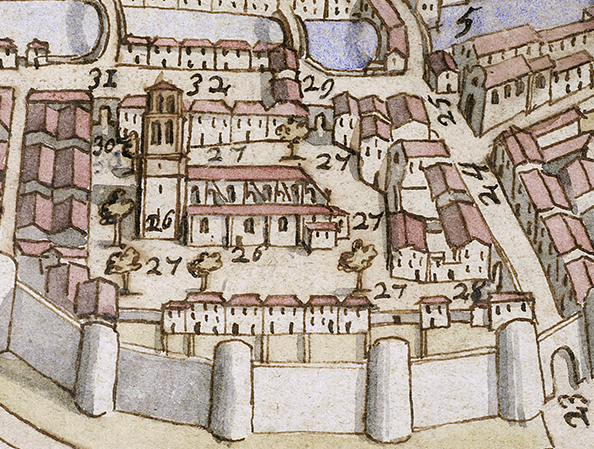 5
31
32
29
25
30
27
27
24
26
27
26
27
27
28
23